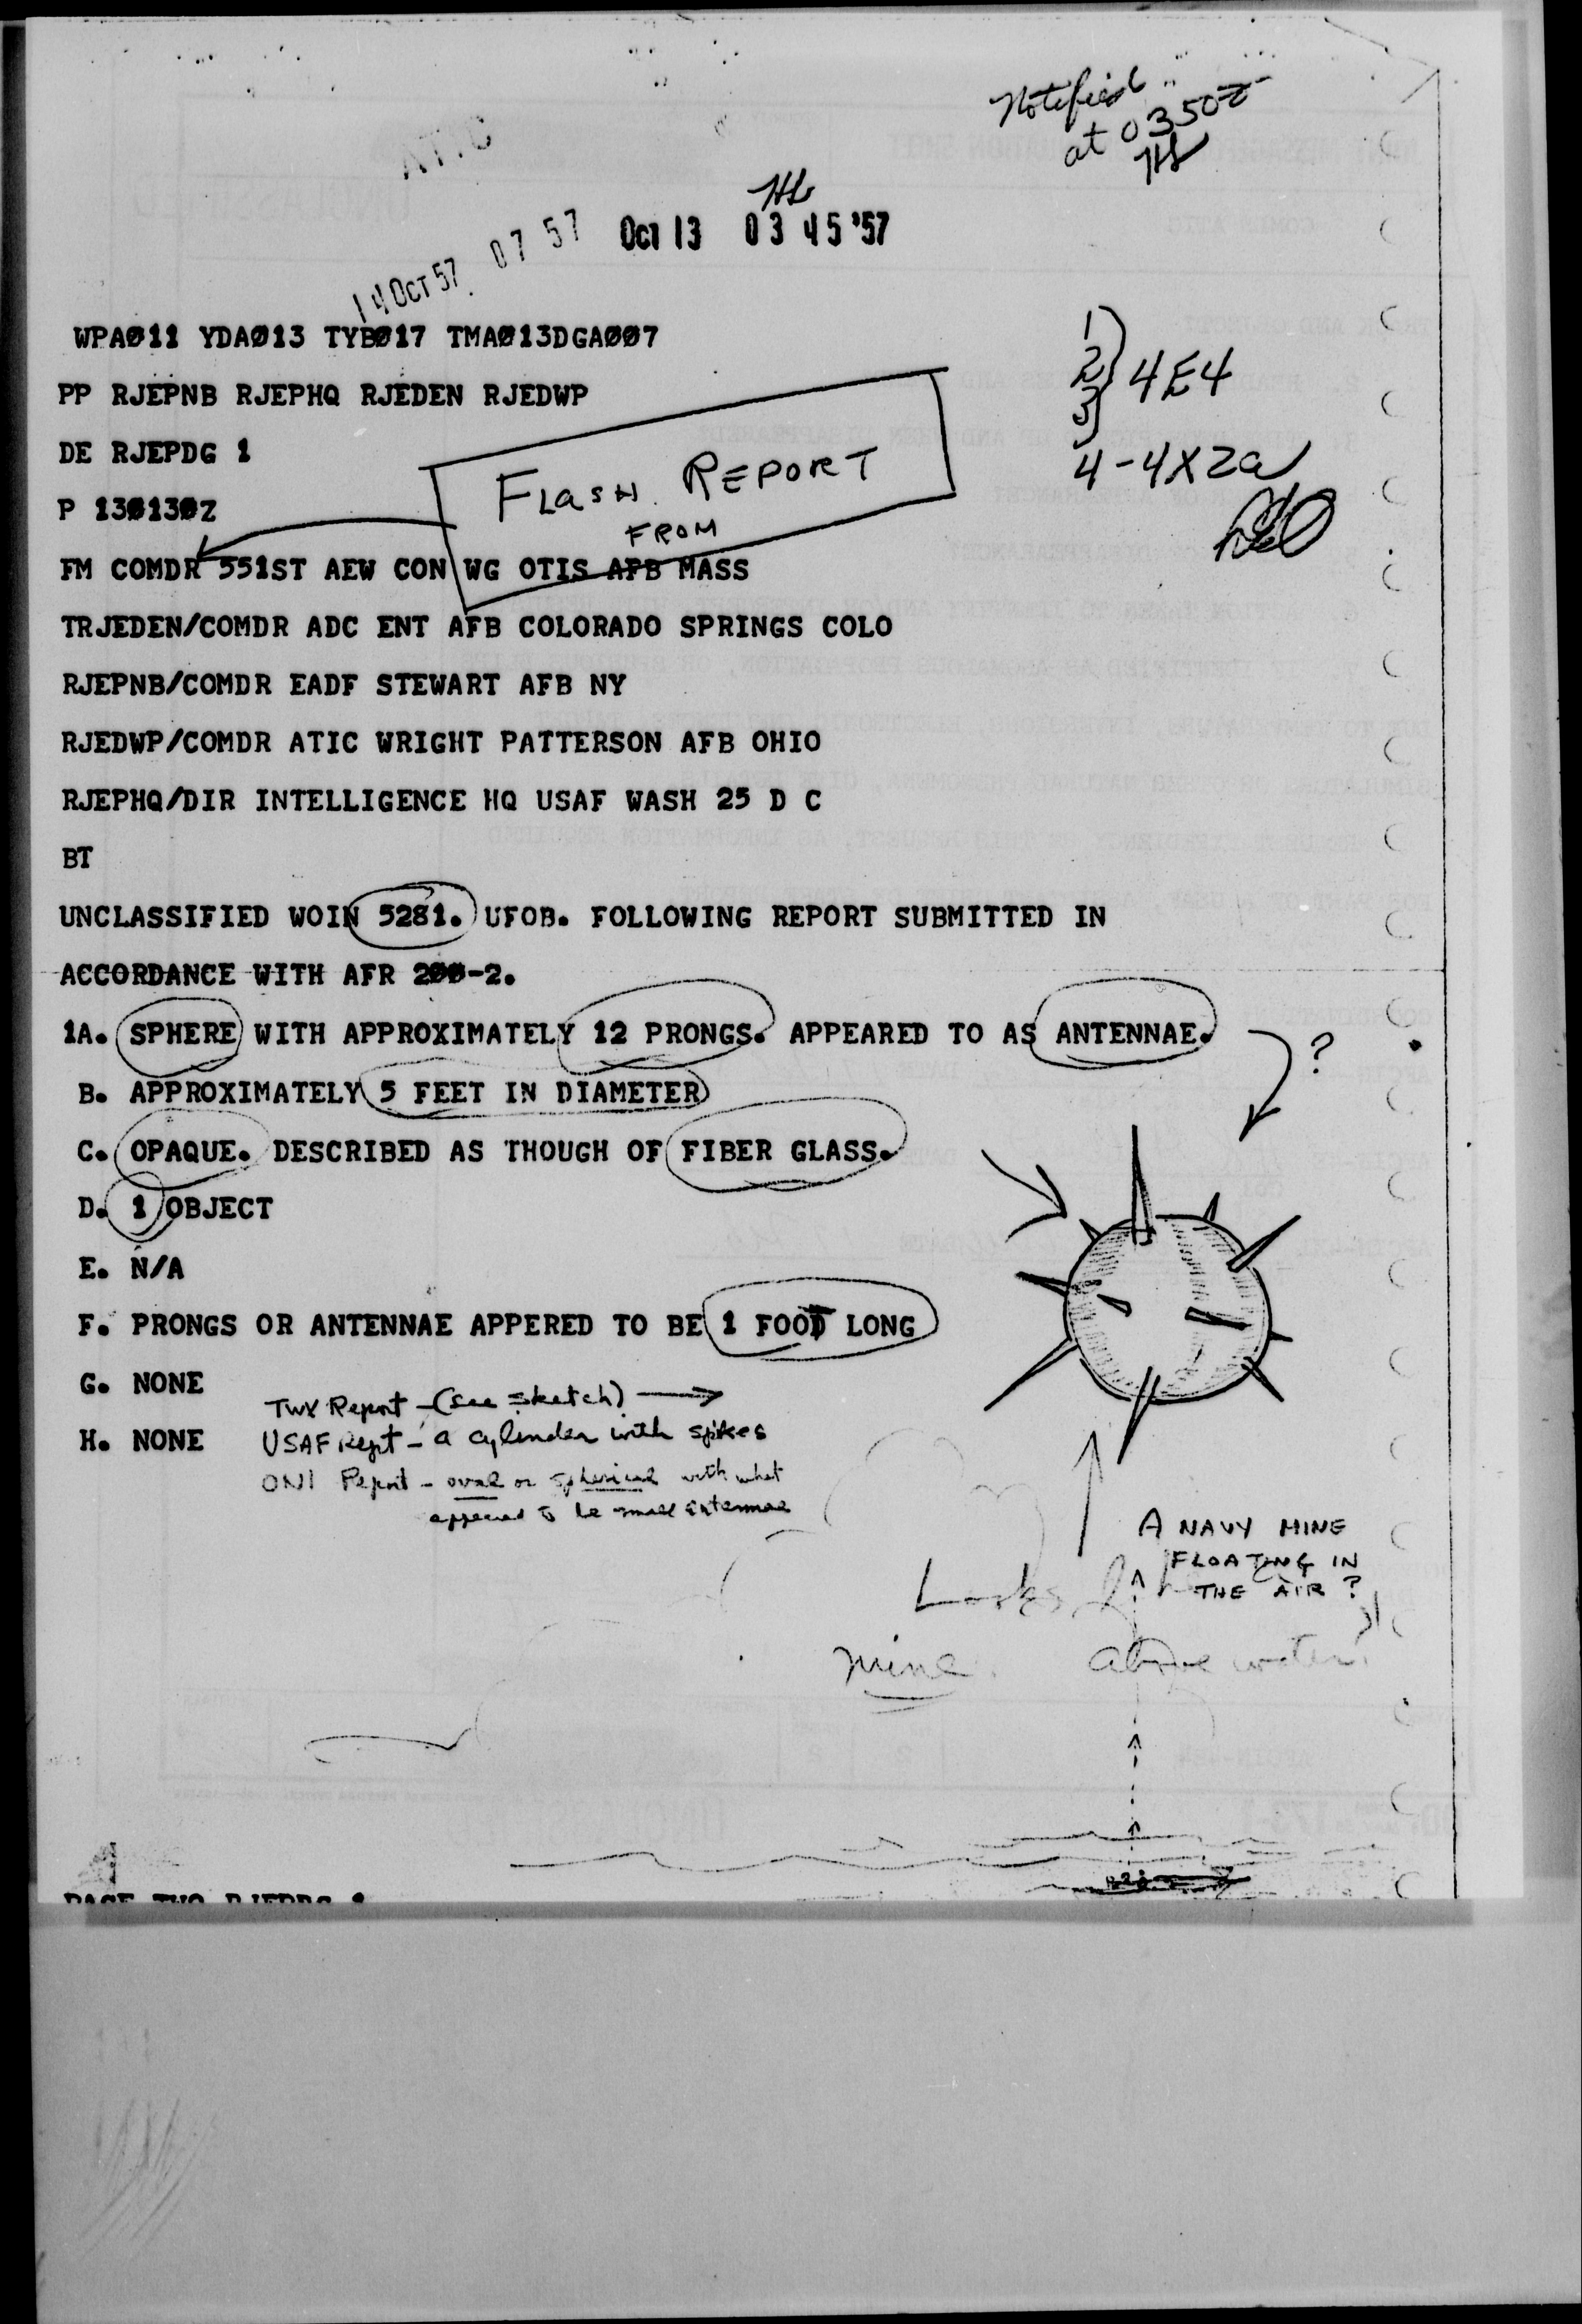 Notified
at 0350Z
ATIC
14 OCT 57 07 57
OCT 13 03 45 '57
WPAØ11 YDAØ13 TYBØ17 TMAØ13DGAØØ7
PP RJEPNB RJEPHQ RJEDEN RJEDWP
DE RJEPDG 1
P 13Ø13ØZ
1
2 4E4
3
4-4X2a
FLASH REPORT
FROM
FM COMDR 551ST AEW CON WG OTIS AFB MASS
TRJEDEN/COMDR ADC ENT AFB COLORADO SPRINGS COLO
RJEPNB/COMDR EADF STEWART AFB NY
RJEDWP/COMDR ATIC WRIGHT PATTERSON AFB OHIO
RJEPHQ/DIR INTELLIGENCE HQ USAF WASH 25 D C
BT
UNCLASSIFIED WOIN 5281. UFOB. FOLLOWING REPORT SUBMITTED IN
ACCORDANCE WITH AFR 2ØØ-2.
1A. SPHERE WITH APPROXIMATELY 12 PRONGS. APPEARED TO AS ANTENNAE.
?
B. APPROXIMATELY 5 FEET IN DIAMETER
C. OPAQUE. DESCRIBED AS THOUGH OF FIBER GLASS.
D. 1 OBJECT
E. N/A
F. PRONGS OR ANTENNAE APPERED TO BE 1 FOOT LONG
G. NONE
H. NONE
TWX Report - (see sketch)
USAF Rept - a cylinder with spikes
ONI Report - oval or spherical with what
appeared to be small antennae
A NAVY MINE
FLOATING IN
THE AIR?
Looks
mine above water
PAGE TWO RJEPDG 1